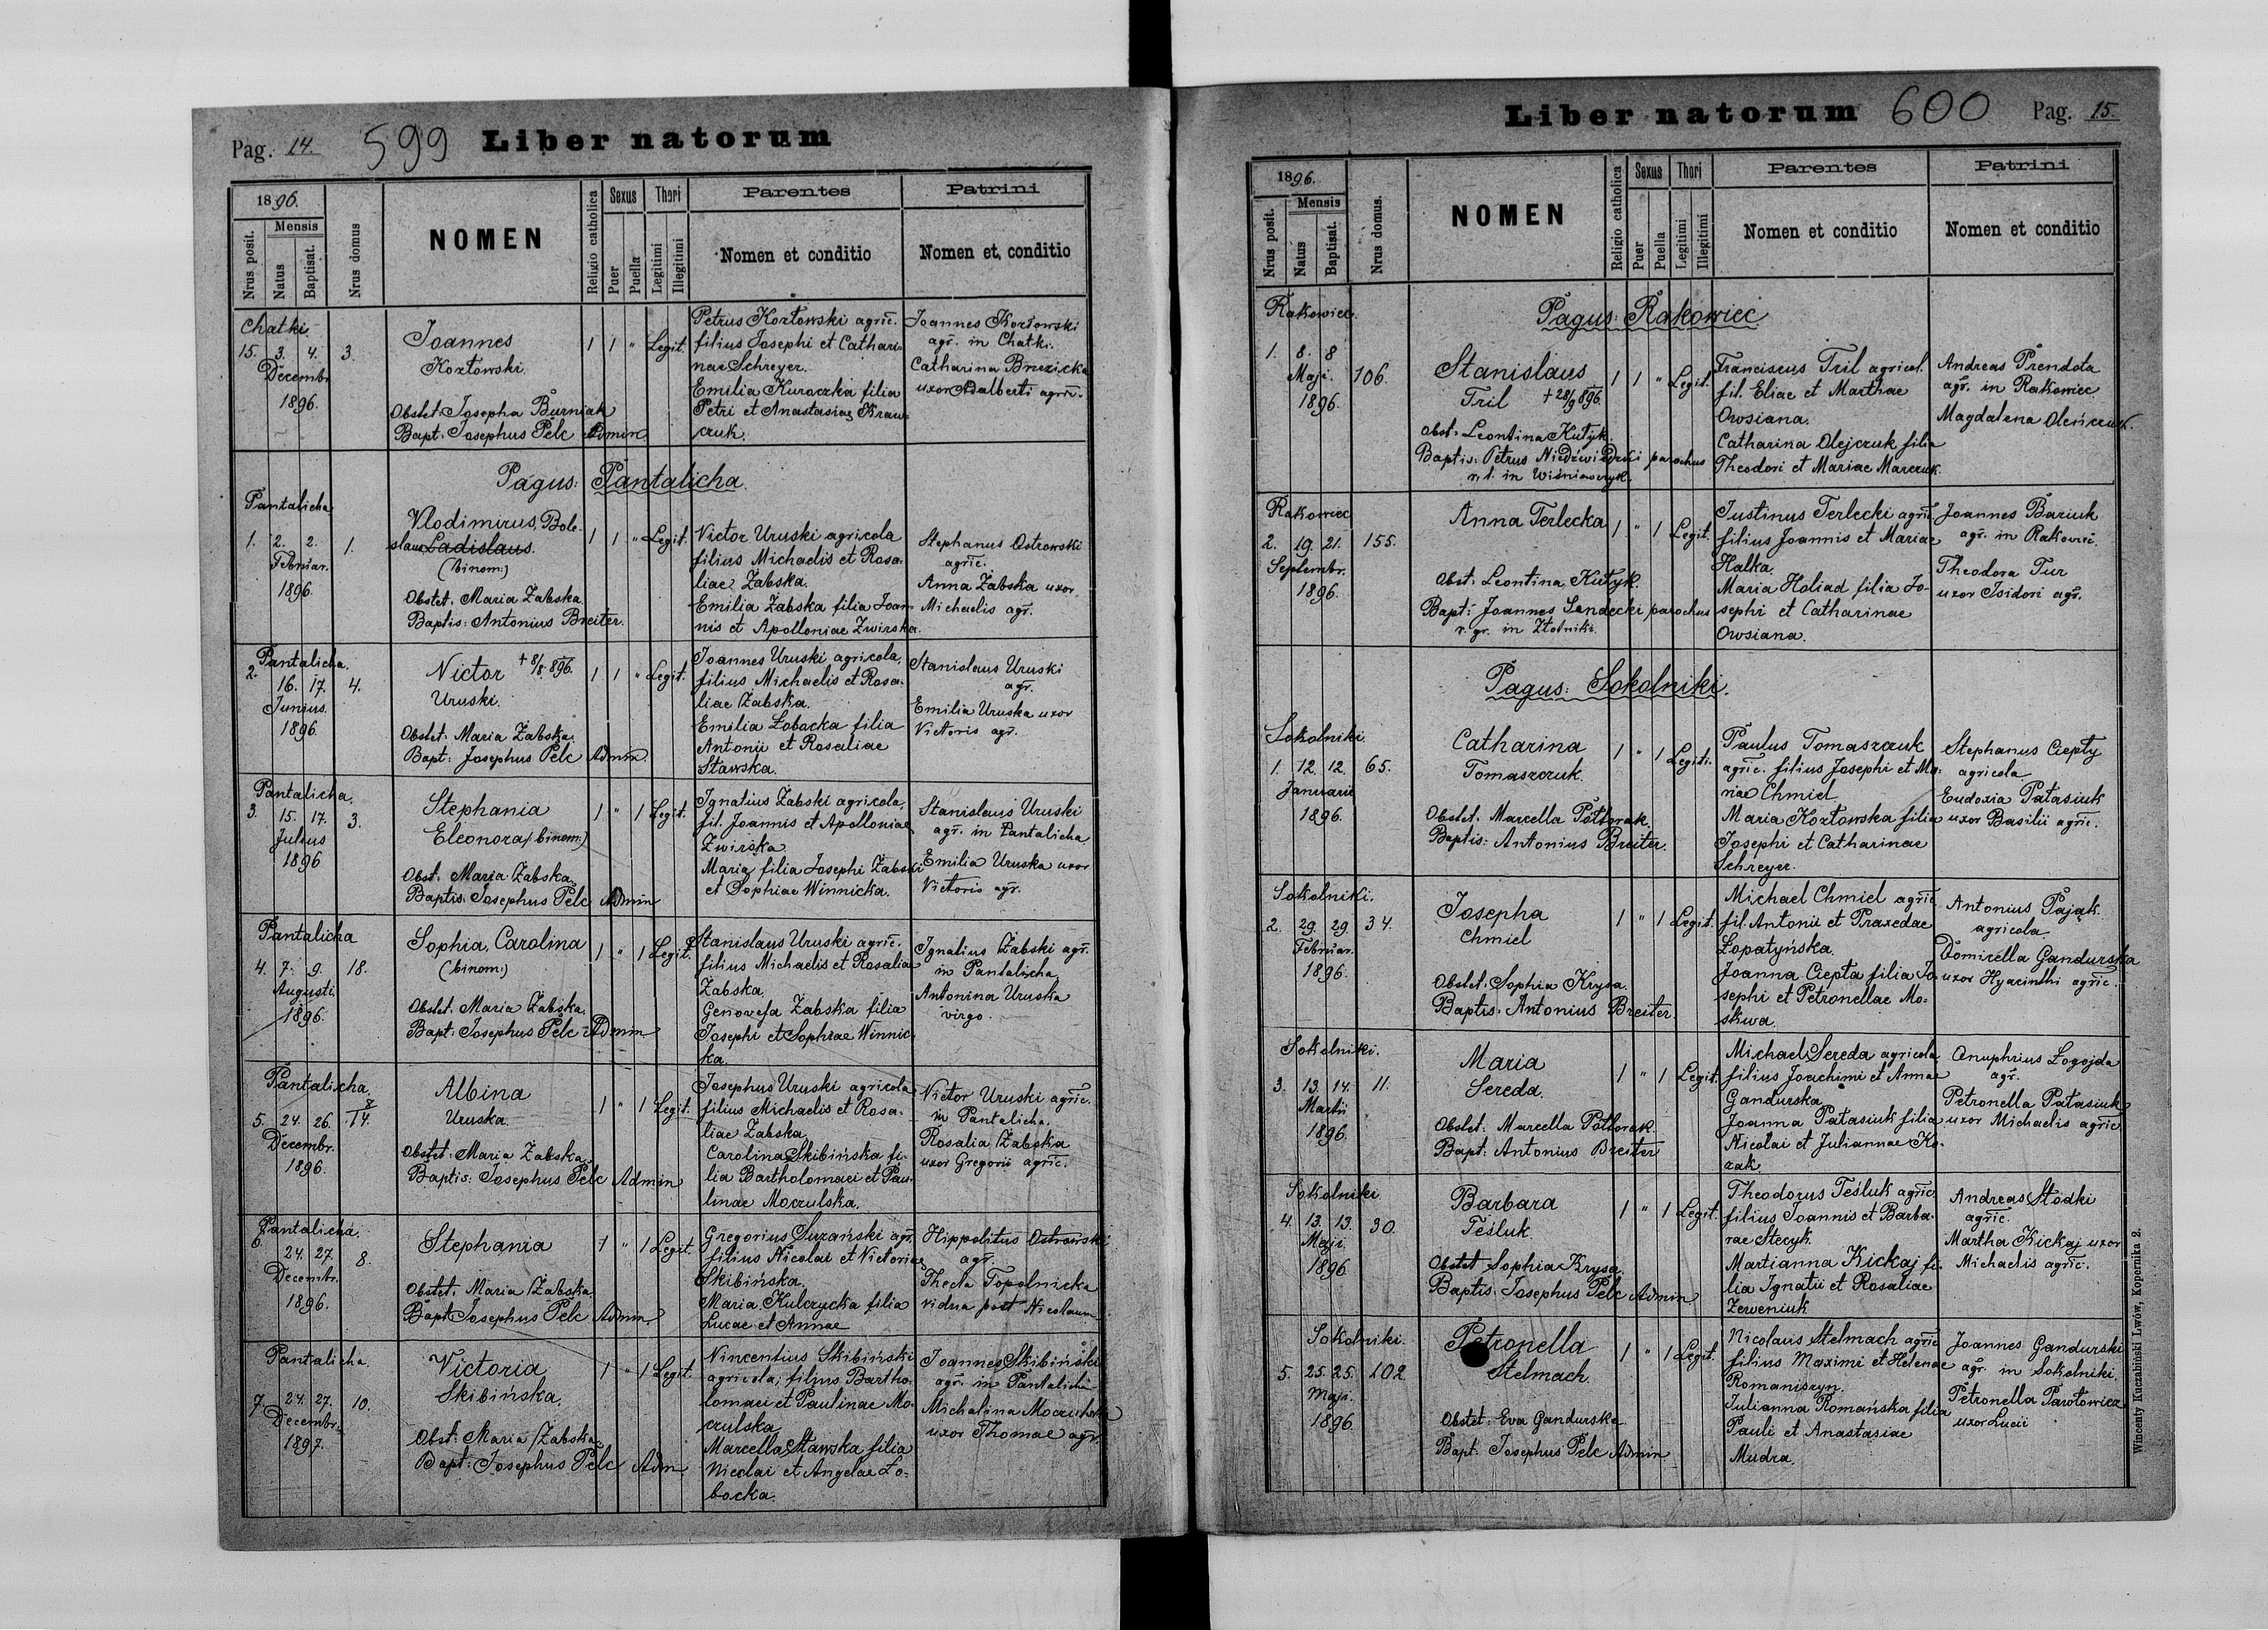 Pag. 14. 599 Liber natorum
1896.
Mensis
Nrus posit.
Natus
Baptisat.
Nrus domus
NOMEN
Religio catholica
Sexus
Puer
Puella
Thori
Legitimi
Illegitimi
Parentes
Nomen et conditio
Patrini
Nomen et conditio
Chatki
15. 3. 4. 3.
Decembr
1896.
Joannes
Kozłowski.
Obstet: Josepha Burniak
Bapt. Josephus Pelc Admin
1 1 " Legit.
Petrus Kozłowski agric.
filius Josephi et Cathari-
nae Schreyer.
Emilia Kuraczka filia
Petri et Anastasiae Kraw-
czuk.
Joannes Kozłowski
agr. in Chatki.
Catharina Bruzicka
uxor Adalberti agric.
Pagus: Pantalicha
Pantalicha
1. 2. 2. 1.
Februar.
1896.
Vlodimirus, Bole-
slaus Ladislaus.
(binom:)
Obstet. Maria Żabska
Baptis: Antonius Breiter.
1 1 " Legit.
Victor Uruski agricola
filius Michaelis et Rosa-
liae Żabska.
Emilia Żabska filia Joan-
nis et Apolloniae Zwirska.
Stephanus Ostrowski
agric.
Anna Żabska uxor
Michaelis agr.
Pantalicha.
2. 16. 17. 4.
Junius.
1896.
Victor + 8/8 896.
Uruski.
Obstet. Maria Żabska.
Bapt: Josephus Pelc Admin.
1 1 " Legit.
Joannes Uruski agricola,
filius Michaelis et Rosa-
liae Żabska.
Emilia Łobacka filia
Antonii et Rosaliae
Stawska.
Stanislaus Uruski
agr.
Emilia Uruska uxor
Victoris agr.
Pantalicha.
3. 15. 17. 3.
Julius
1896
Stephania
Eleonora (binom:)
Obst. Maria Żabska.
Baptis. Josephus Pelc Admin
1 " 1 Legit.
Ignatius Żabski agricola,
fil. Joannis et Apolloniae
Zwirska.
Maria filia Josephi Żabski
et Sophiae Winnicka.
Stanislaus Uruski
agr. in Pantalicha
Emilia Uruska uxor
Victoris agr.
Pantalicha
4. 7. 9. 18.
Augusti.
1896.
Sophia, Carolina
(binom:)
Obstet. Maria Żabska.
Bapt: Josephus Pelc Admin
1 " 1 Legit.
Stanislaus Uruski agric.
filius Michaelis et Rosalia
Żabska.
Genovefa Żabska filia
Josephi et Sophiae Winnic-
ka.
Ignatius Żabski agr.
in Pantalicha
Antonina Uruska
virgo.
Pantalicha.
5. 24. 26. 8 14.
Decembr.
1896.
Albina
Uruska.
Obstet: Maria Żabska
Baptis: Josephus Pelc Admin
1 " 1 Legit.
Josephus Uruski agricola
filius Michaelis et Rosa-
liae Żabska.
Carolina Skibińska fi-
lia Bartholomaei et Pau-
linae Moczulska.
Victor Uruski agric.
in Pantalicha.
Rosalia Żabska
uxor Gregorii agric.
Pantalicha.
6. 24. 27. 8.
Decembr.
1896.
Stephania
Obstet. Maria Żabska
Bapt: Josephus Pelc Admin.
1 " 1 Legit.
Gregorius Suzański agr.
filius Nicolai et Victoriae
Skibińska.
Maria Kulczycka filia
Lucae et Annae
Hippolitus Ostrowski
agr.
Thecla Topolnicka
vidua post Nicolaum
Pantalicha.
7. 24. 27. 10.
Decembr.
1897.
Victoria
Skibińska.
Obst: Maria Żabska
Bapt: Josephus Pelc Adm
1 " 1 Legit
Vincentius Skibiński
agricola, filius Bartho-
lomaei et Paulinae Mo-
czulska
Marcella Stawska filia
Nicolai et Angelae Ło-
bocka.
Joannes Skibiński
agr. in Pantalicha
Michalina Moczulska
uxor Thomae agr.
Liber natorum 600 Pag. 15.
1896.
Mensis
Nrus posit.
Natus
Baptisat.
Nrus domus.
NOMEN
Religio catholica
Sexus
Puer
Puella
Thori
Legitimi
Illegitimi
Parentes
Nomen et conditio
Patrini
Nomen et conditio
Pagus: Rakowiec
Rakowiec.
1. 8. 8 106.
Maji.
1896.
Stanislaus
Tril + 28/9 896.
Obst. Leontina Kutyk.
Baptis: Petrus Niedźwiedzki parochus
r. l. in Wiśniowczyk.
1 1 " Legit.
Franciscus Tril agricol.
fil. Eliae et Marthae
Owsiana.
Catharina Olejczuk filia
Theodori et Mariae Marczuk.
Andreas Prendota
agr. in Rakowiec
Magdalena Oleńczuk.
Rakowiec
2. 19. 21. 155.
Septembr.
1896.
Anna Terlecka
Obst. Leontina Kutyk
Bapt: Joannes Sandecki parochus
r. gr. in Złotniki.
1 " 1 Legit.
Justinus Terlecki agric
filius Joannis et Mariae
Halka.
Maria Holiad filia Jo-
sephi et Catharinae
Owsiana.
Joannes Bariuk
agr. in Rakowiec.
Theodora Tur
uxor Isidori agr.
Pagus: Sokolniki.
Sokolniki.
1. 12. 12. 65.
Januarii
1896.
Catharina
Tomaszczuk.
Obstet. Marcella Półtorak.
Baptis: Antonius Breiter.
1 " 1 Legiti.
Paulus Tomaszczuk
agric. filius Josephi et Ma-
riae Chmiel
Maria Kozłowska filia
Josephi et Catharinae
Schreyer.
Stephanus Ciepły
agricola
Eudoxia Patasiuk
uxor Basilii agric.
Sokolniki.
2. 29. 29. 34.
Februar.
1896.
Josepha
Chmiel
Obstet. Sophia Krysa.
Baptis. Antonius Breiter.
1 " 1 Legit.
Michael Chmiel agric
fil. Antonii et Praxedae
Łopatyńska.
Joanna Ciepła filia Jo-
sephi et Petronellae Mo-
skwa.
Antonius Pająk
agricola.
Domicella Gandurska
uxor Hyacinthi agric.
Sokolniki.
3. 13. 14. 11.
Martii
1896.
Maria
Sereda.
Obstet: Marcella Półtorak.
Bapt: Antonius Breiter
1 " 1 Legit.
Michael Sereda agricola
filius Joachimi et Annae
Gandurska
Joanna Patasiuk filia
Nicolai et Juliannae Ko-
zak.
Onuphrius Łogojda
agr.
Petronella Patasiuk
uxor Michaelis agric
Sokolniki
4. 13. 13. 30.
Maji
1896.
Barbara
Teśluk
Obstet Sophia Krysa.
Baptis. Josephus Pelc Admin
1 " 1 Legit.
Theodorus Teśluk agric.
filius Joannis et Barba-
rae Stecyk.
Martianna Kickaj fi-
lia Ignatii et Rosaliae
Zeweniuk
Andreas Słodki
agric.
Martha Kickaj uxor
Michaelis agric.
Sokolniki.
5. 25. 25. 102.
Maji.
1896
Petronella
Stelmach.
Obstet: Eva Gandurska
Bapt. Josephus Pelc Admin
1 " 1 Legit.
Nicolaus Stelmach agric
filius Maximi et Helenae
Romaniszyn.
Julianna Romańska filia
Pauli et Anastasiae
Mudra.
Joannes Gandurski
agr. in Sokolniki.
Petronella Pawłowicz
uxor Lucii
Wincenty Kuczabiński Lwów, Kopernika 2.